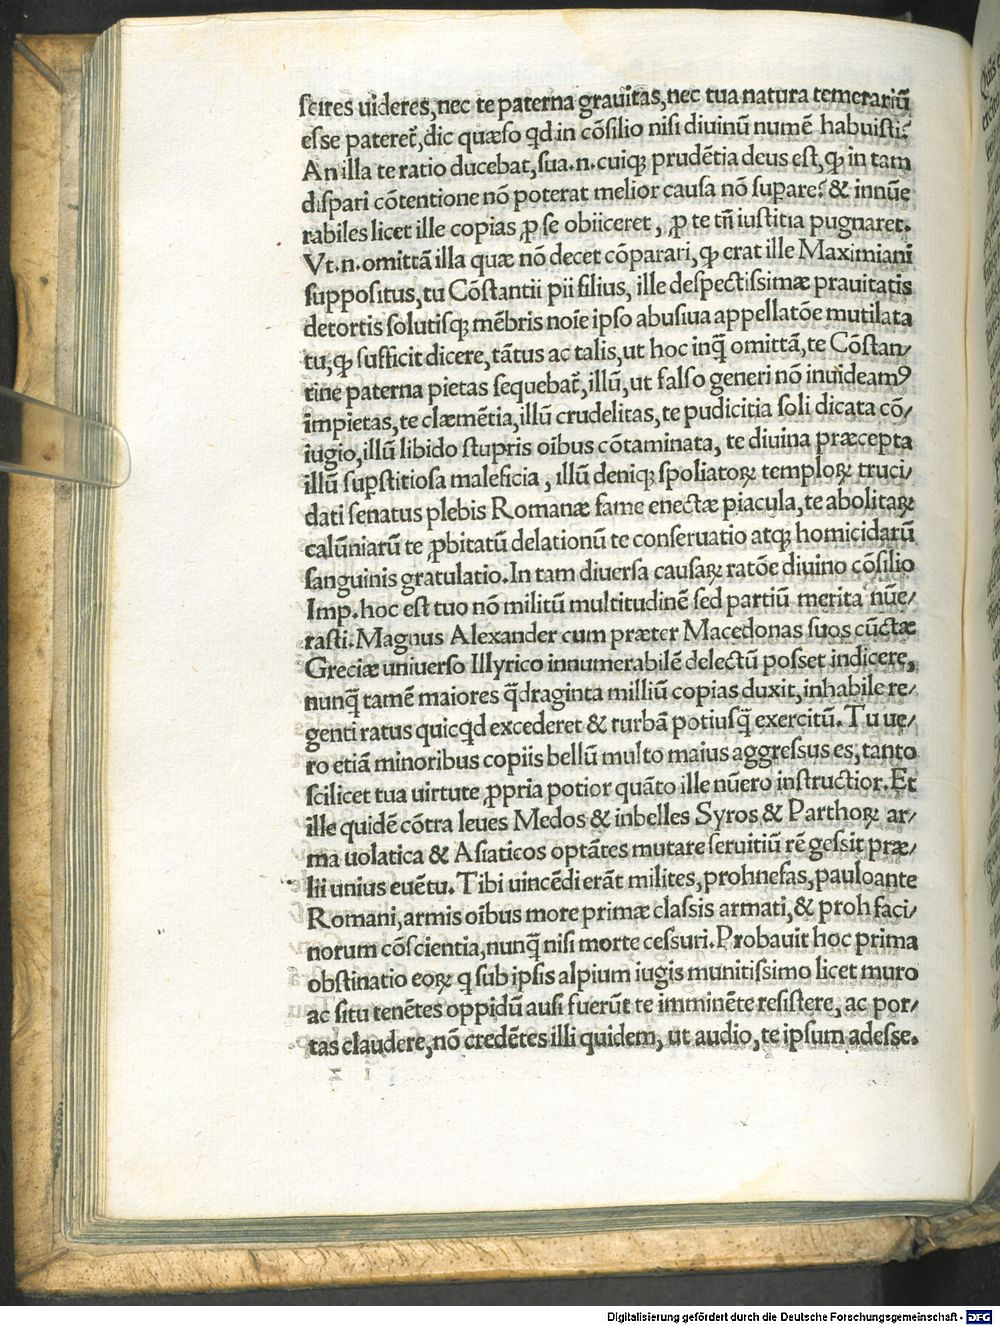 ſcires uideres,nec te paterna grauitas,nec tua natura temerariū
eſſe pateret᷑,dic quæſo qd in cōſilio niſi diuinū numē habuiſti?
An illa te ratio ducebat,ſua.n.cuiqȝ prudētia deus eſt,ꝙ in tam
diſpari cōtentione nō poterat melior cauſa nō ſupare? & innūe
rabiles licet ille copias ꝓ ſe obiiceret, ꝓ te tñ iuſtitia pugnaret.
Vt.n.omittā illa quæ nō decet cōparari,ꝙ erat ille Maximiani
ſuppoſitus,tu Cōſtantii pii filius, ille deſpectiſſimæ prauitatis
detortis ſolutiſqȝ mēbris noīe ipſo abuſiua appellatōe mutilata
tu,ꝙ ſufficit dicere,tātus ac talis,ut hoc inq̄ omittā,te Cōſtan/
tine paterna pietas ſequebat᷑,illū,ut falſo generi nō inuideamꝰ
impietas,te clæmētia,illū crudelitas,te pudicitia ſoli dicata cō/
iugio,illū libido ſtupris oībus cōtaminata, te diuina præcepta
illū ſuꝑſtitioſa maleficia, illū deniqȝ ſpoliatoꝝ temploꝝ truci/
dati ſenatus plebis Romanæ fame enectæ piacula,te abolitaꝝ
calūniarū te ꝓbitatū delationū te conſeruatio atqȝ homicidarū
ſanguinis gratulatio.In tam diuerſa cauſaꝝ ratōe diuino cōſilio
Imp.hoc eſt tuo nō militū multitudinē ſed partiū merita nūe/
raſti.Magnus Alexander cum præter Macedonas ſuos cūctæ
Greciæ uniuerſo Illyrico innumerabilē delectū poſſet indicere,
nunq̄ tamē maiores q̄draginta milliū copias duxit,inhabile re/
genti ratus quicqd excederet & turbā potiuſq̄ exercitū.Tu ue/
ro etiā minoribus copiis bellū multo maius aggreſſus es,tanto
ſcilicet tua uirtute ꝓpria potior quāto ille nūero inſtructior.Et
ille quidē cōtra leues Medos & inbelles Syros & Parthoꝝ ar/
ma uolatica & Aſiaticos optātes mutare ſeruitiū rē geſſit præ/
lii unius euētu.Tibi uincēdi erāt milites,prohnefas,pauloante
Romani,armis oībus more primæ claſſis armati,& proh faci/
norum cōſcientia,nunq̄ niſi morte ceſſuri.Probauit hoc prima
obſtinatio eoꝝ q ſub ipſis alpium iugis munitiſſimo licet muro
ac ſitu tenētes oppidū auſi fuerūt te imminēte reſiſtere, ac por/
tas claudere,nō credētes illi quidem, ut audio,te ipſum adeſſe.
Digitalisierung gefördert durch die Deutsche Forschungsgemeinschaft - DFG